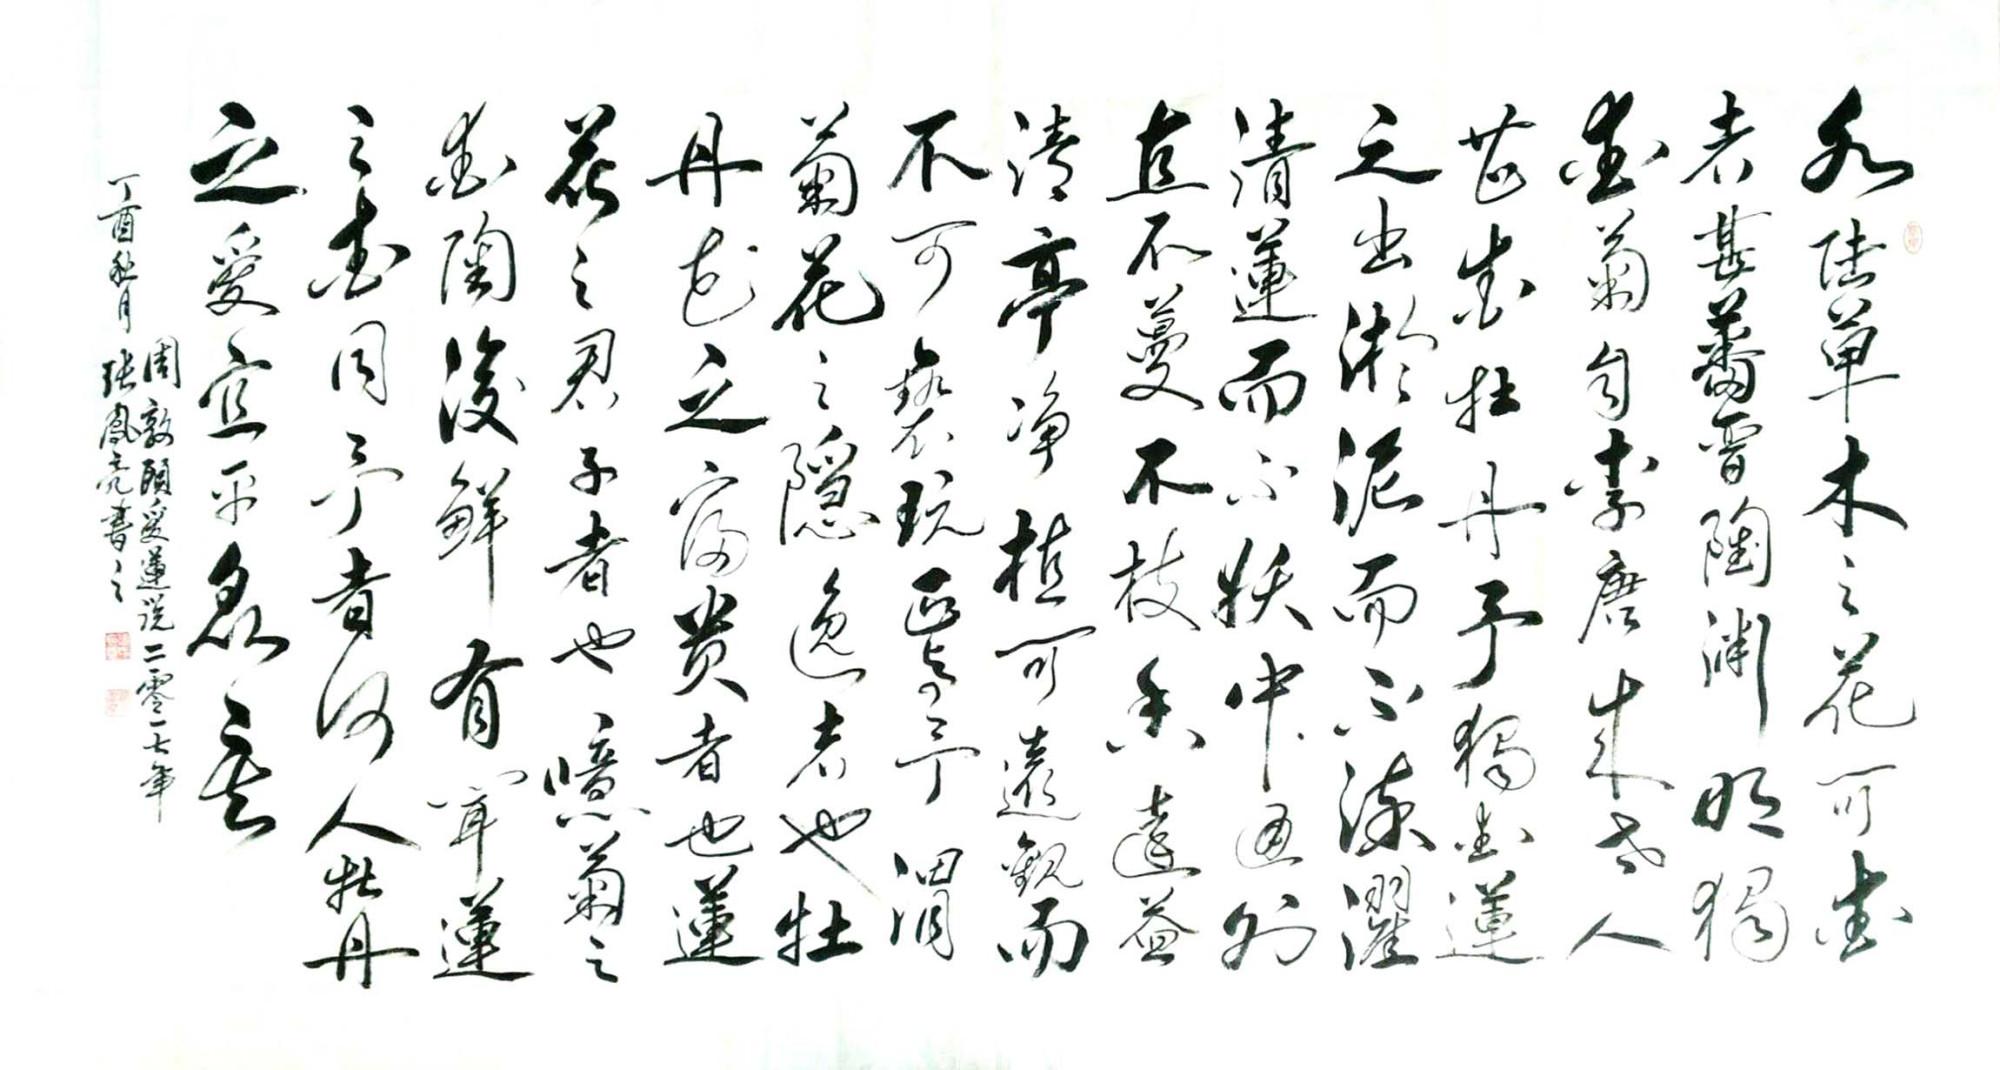 水陸草木之花可愛
者甚蕃晋陶淵明獨
愛菊自李唐来世人
甚愛牡丹予獨愛蓮
之出淤泥而不染濯
清蓮而不妖中通外
直不蔓不枝香遠益
清亭净植可遠觀而
不可褻玩焉予謂
菊花之隱逸者也牡
丹花之富貴者也蓮
花之君子者也噫菊之
愛陶後鮮有聞蓮
之愛同予者何人牡丹
之愛宜乎眾矣
周敦頤愛蓮説二零一七年
丁酉秋月張鳳亮書之